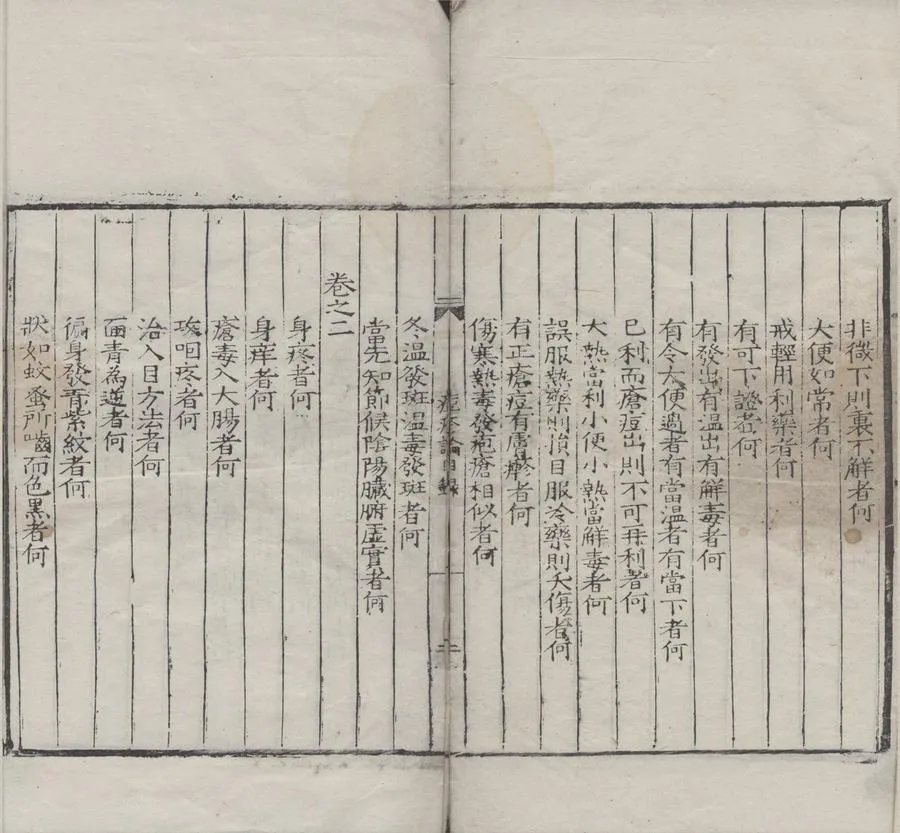 非微下則裏不解者何
大便如常者何
戒輕用利藥者何
有可下證者何
有發出有溫出有解毒者何
有令大便過者有當溫者有當下者何
已利而瘡痘出則不可再利者何
大熱當利小便小熱當解毒者何
誤服熱藥則損目服冷藥則夭傷者何
有正瘡痘有膚疹者何
傷寒熱毒發皰瘡相似者何
痘疹論目錄
冬溫發斑溫毒發斑者何
當先知節候陰陽臟腑虛實者何
卷之二
身疼者何
身痒者何
瘡毒入大腸者何
攻咽疼者何
治入目方法者何
面青為逆者何
徧身發青紫紋者何
狀如蚊蚤所嚙而色黑者何